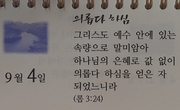 의롭다 하심
그리스도 예수 안에 있는
속량으로 말미암아
하나님의 은혜로 값 없이
의롭다 하심을 얻은 자
되었느니라
(롬 3:24)
9월 4일